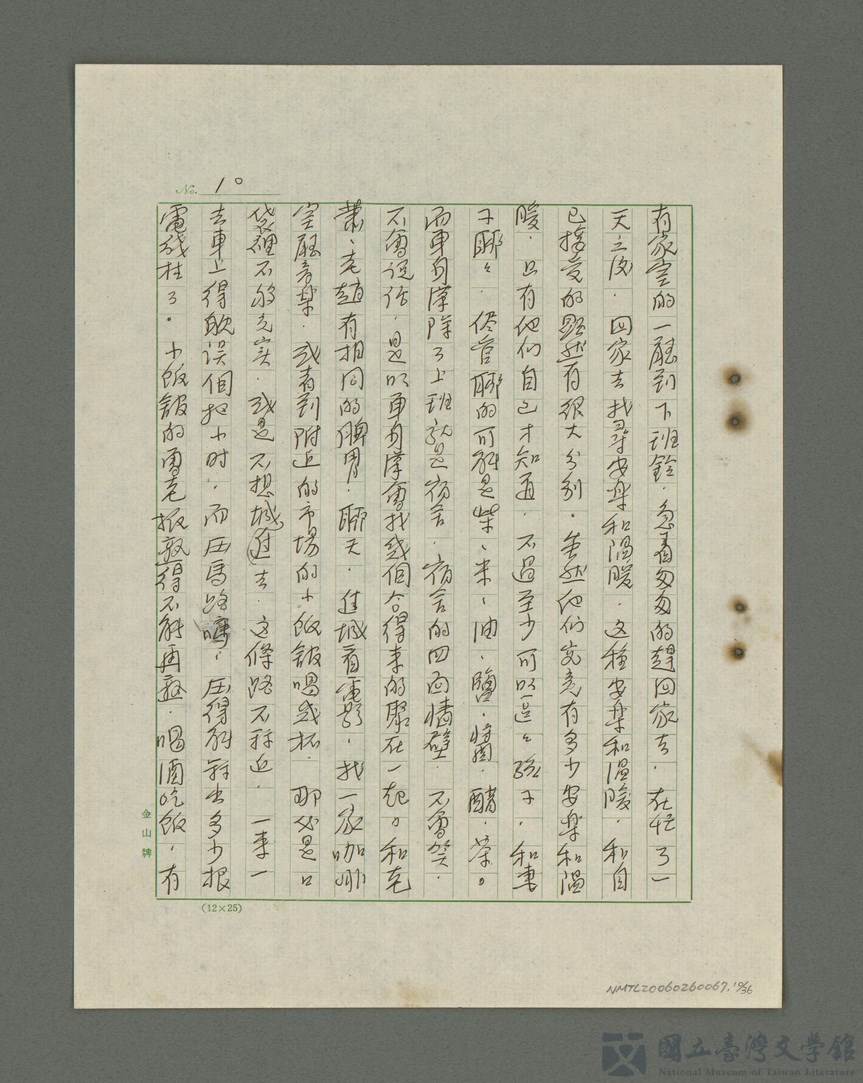 No. 10
有家室的一聽到下班鈴．急着匆匆的趕回家去．在忙了一
天之後．回家去找尋安樂和溫暖．这種安樂和溫暖．和自
已接受的顯然有很大分別．虽然他們究竟有多少安樂和溫
暖．只有他們自已才知道．不過至少可以逗逗孩子．和妻
子聊聊．儘管聊的可能是柴、米、油、鹽．醬．醋．茶。
而單身漢除了上班就是宿舍．宿舍的四面墙壁．不會笑．
不會説话．是以單身漢會找幾個合得来的聚在一起。和老
蕭、老趙有相同的脾胃．聊天．進城看電影．找一家咖啡
室聽音樂．或者到附近的市場的小飯舘喝幾杯．那必是口
袋裡不够充实．或是不想進城去．这條路不祘近．一来一
去車上得躭误個把小时．而压馬路．压得能祘出多少根
電线杜了。小飯舘的曹老板熟得不能再熟．喝酒吃飯．有
金山牌
(12×25)
NMTL20060260067.10/36
國立臺灣文學館
National Museum of Taiwan Literature